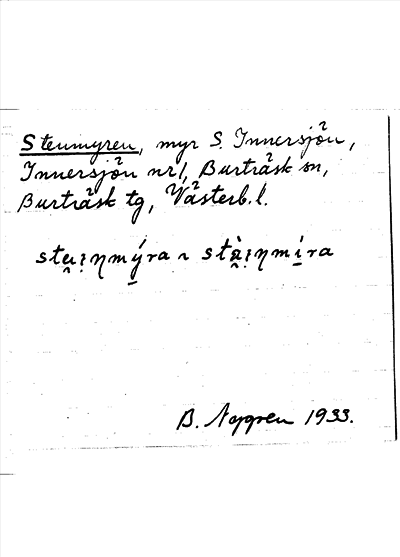 Stenmyren, myr S. Innersjön,
Innersjön nr 1, Burträsk sn,
Burträsk tg, Västerb. l.
B. Nygren 1933.